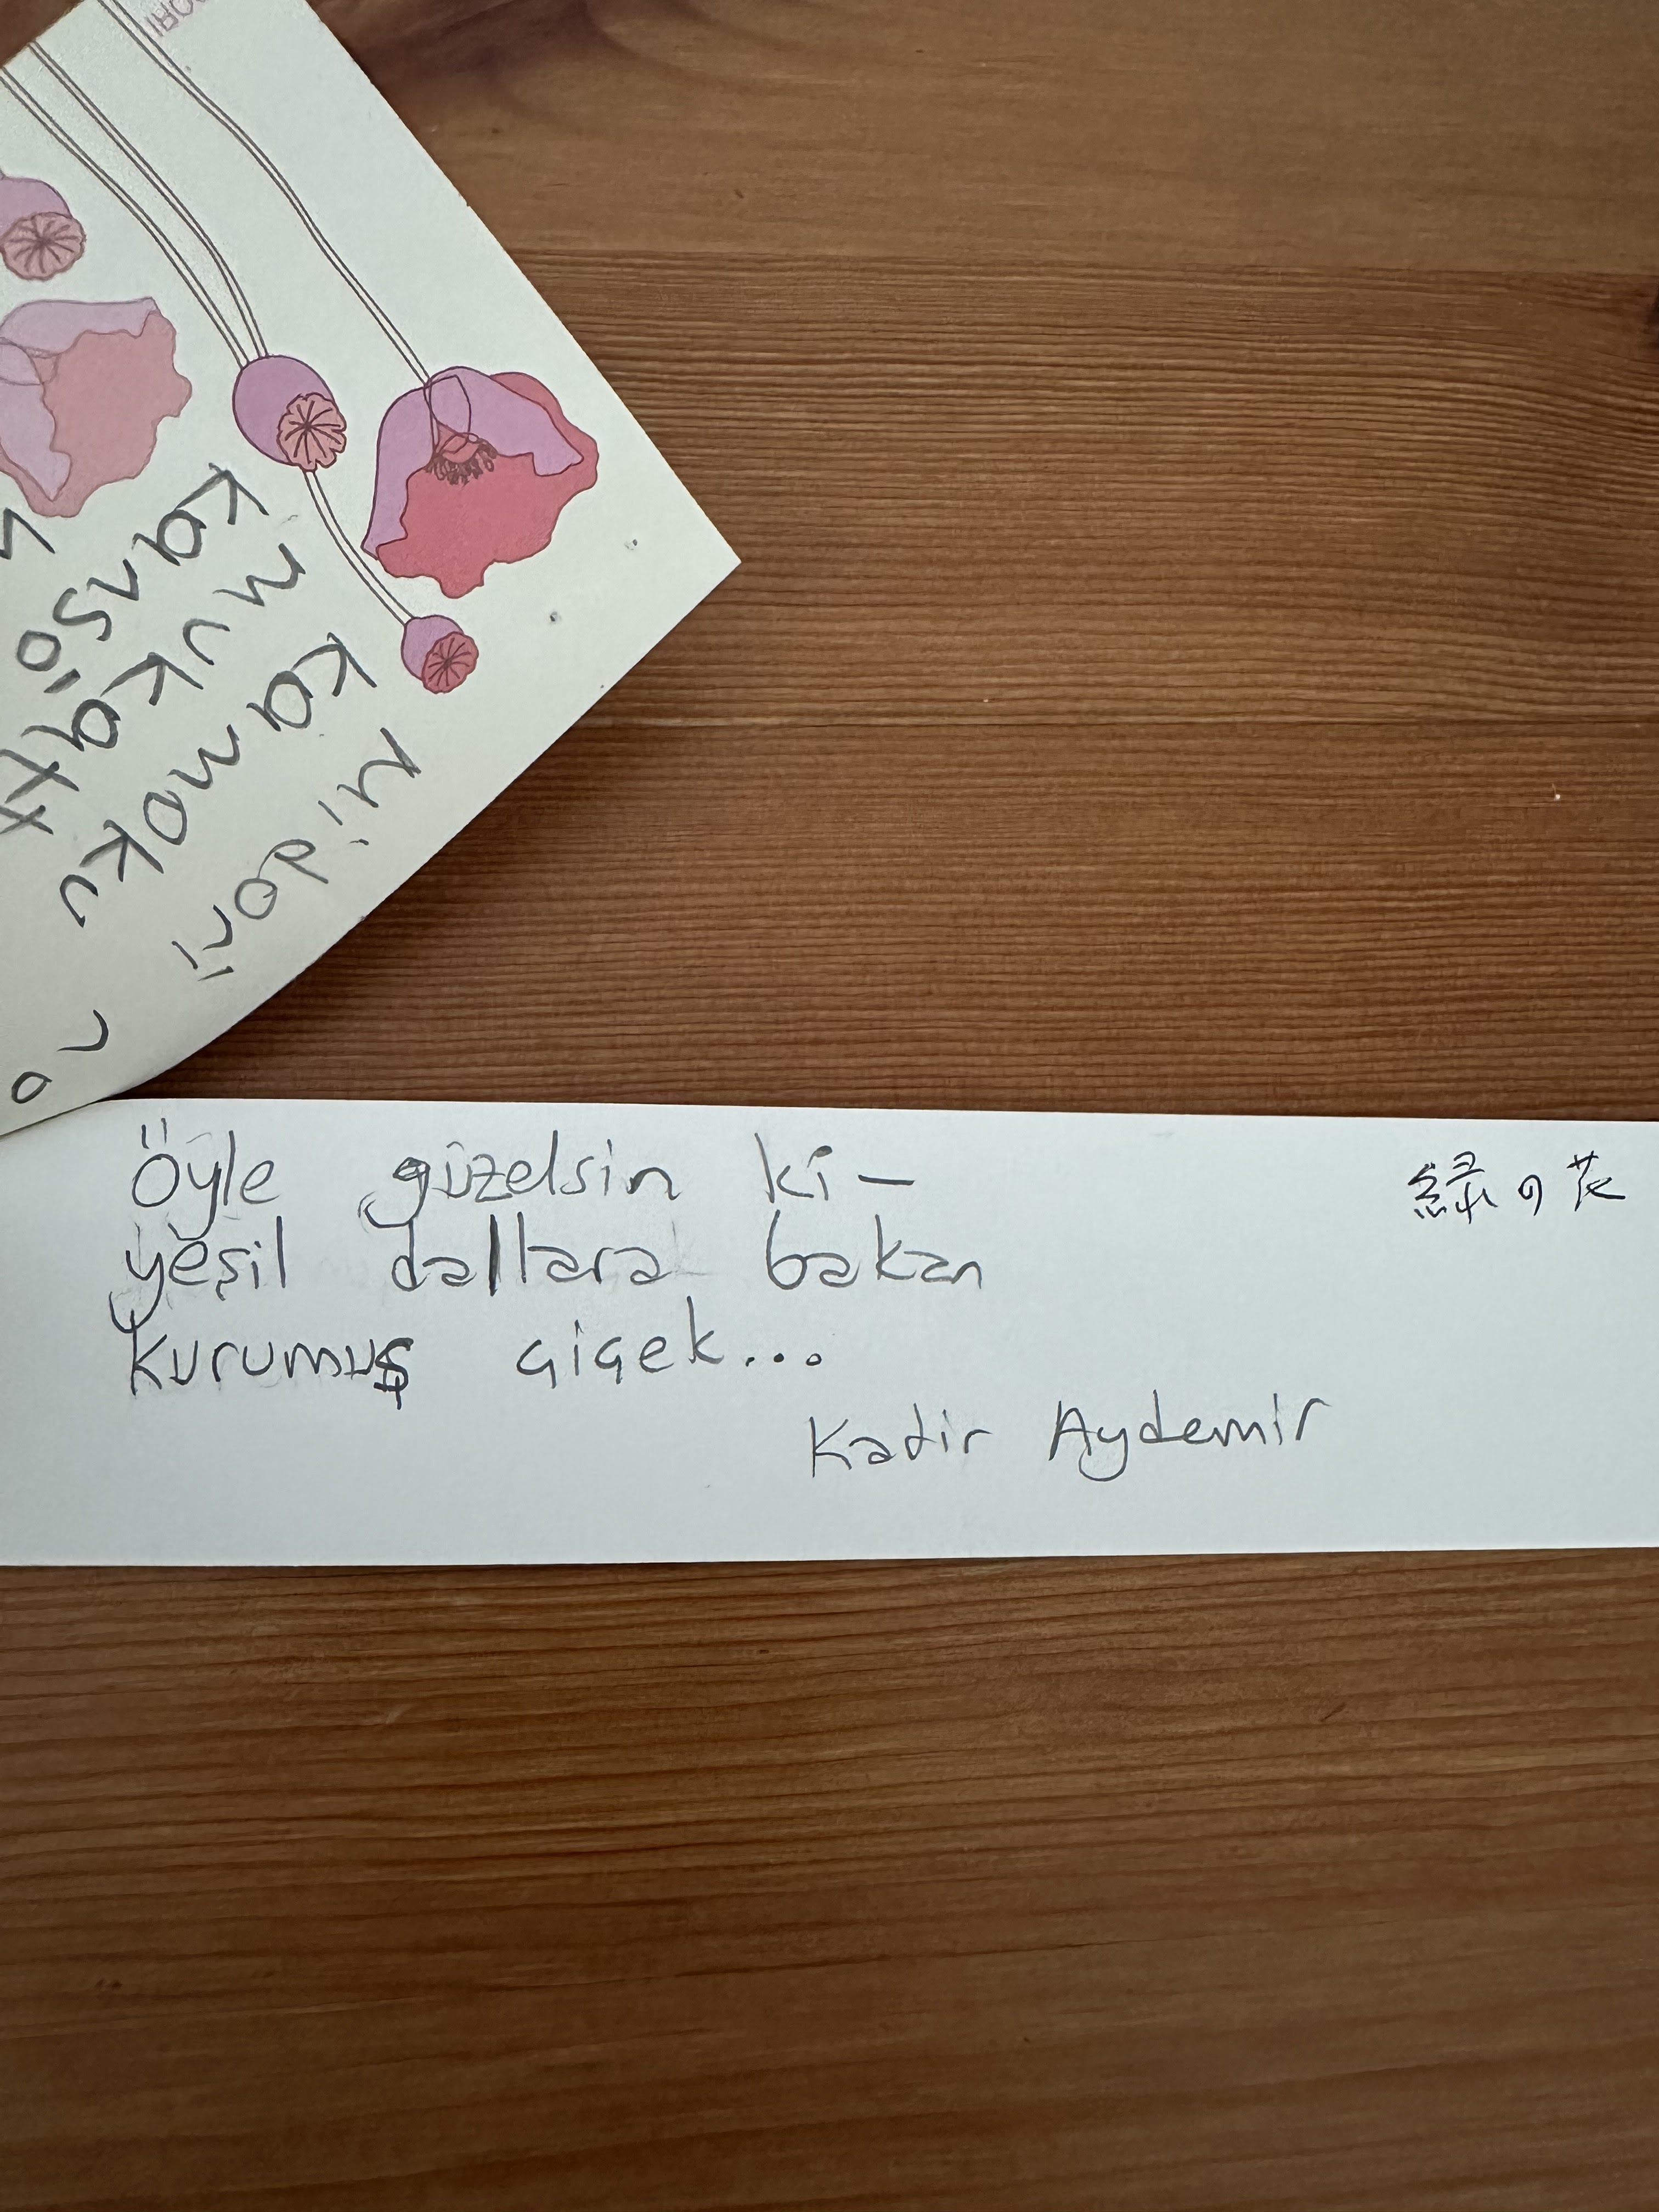 Midori no
Kamoku
mukatt
Kansoi
Öyle güzelsin ki-
yeşil dallara bakan
kurumuş çiçek...
Kadir Aydemir
緑の花